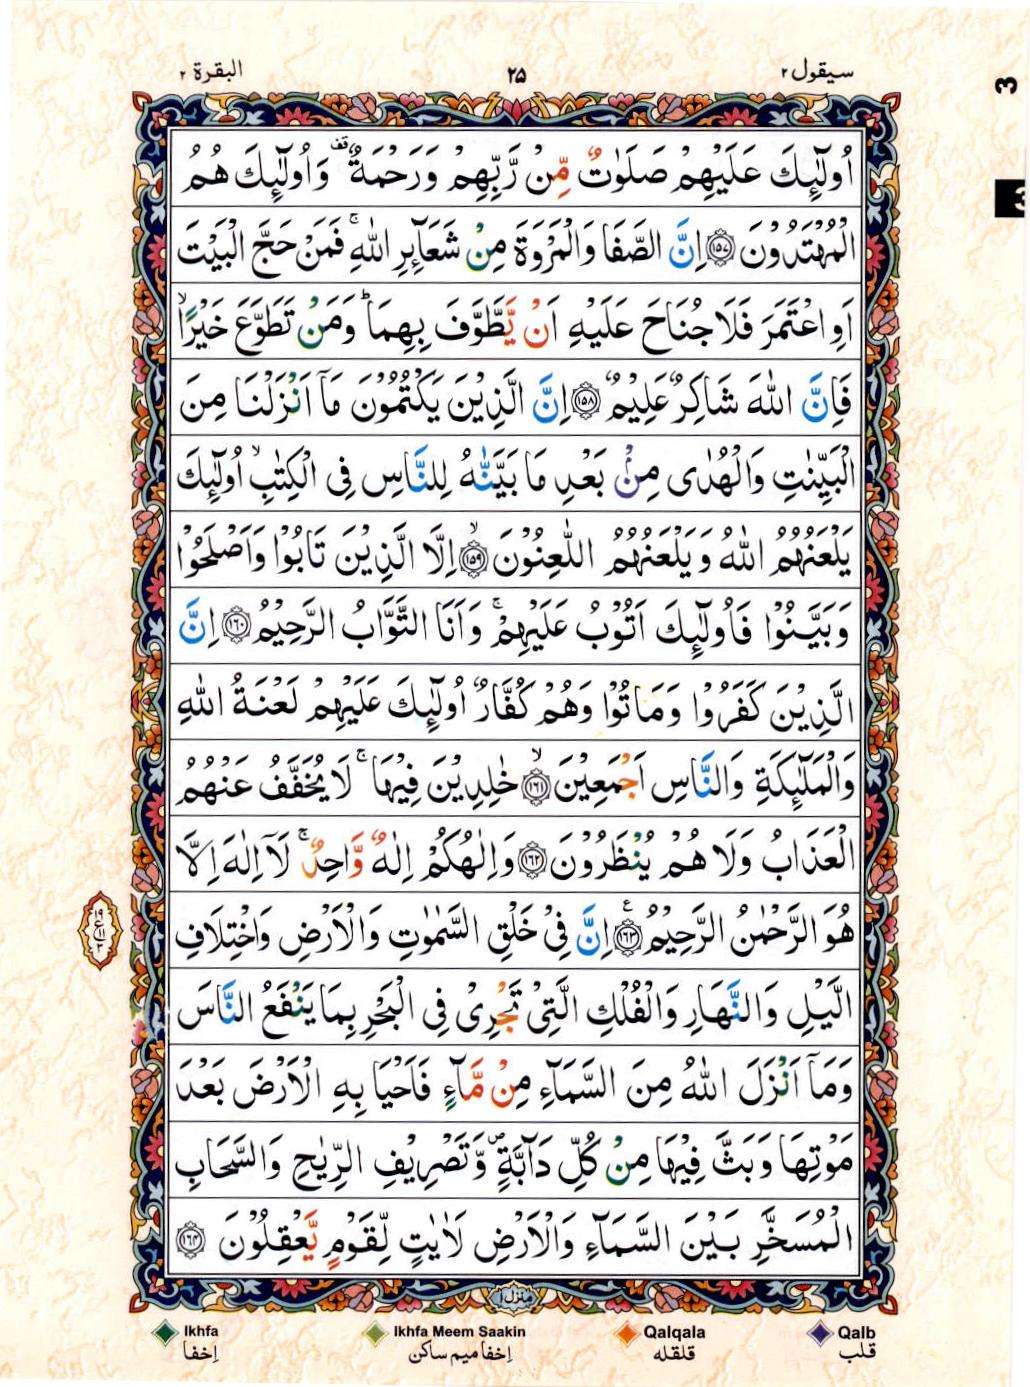 سيقول ٢
٢٥
البقرة ٢
3
اُولٰٓئِكَ عَلَيْهِمْ صَلَوٰتٌ مِّنْ رَّبِّهِمْ وَرَحْمَةٌ ۟ وَاُولٰٓئِكَ هُمُ
الْمُهْتَدُوْنَ ﴿١٥٧﴾ اِنَّ الصَّفَا وَالْمَرْوَةَ مِنْ شَعَآئِرِ اللّٰهِ ۚ فَمَنْ حَجَّ الْبَيْتَ
اَوِ اعْتَمَرَ فَلَا جُنَاحَ عَلَيْهِ اَنْ يَّطَّوَّفَ بِهِمَا ؕ وَمَنْ تَطَوَّعَ خَيْرًا ۙ
فَاِنَّ اللّٰهَ شَاكِرٌ عَلِيْمٌ ﴿١٥٨﴾ اِنَّ الَّذِيْنَ يَكْتُمُوْنَ مَآ اَنْزَلْنَا مِنَ
الْبَيِّنٰتِ وَالْهُدٰى مِنْۢ بَعْدِ مَا بَيَّنّٰهُ لِلنَّاسِ فِى الْكِتٰبِ ۙ اُولٰٓئِكَ
يَلْعَنُهُمُ اللّٰهُ وَيَلْعَنُهُمُ اللّٰعِنُوْنَ ﴿١٥٩﴾ ۙ اِلَّا الَّذِيْنَ تَابُوْا وَاَصْلَحُوْا
وَبَيَّنُوْا فَاُولٰٓئِكَ اَتُوْبُ عَلَيْهِمْ ۚ وَاَنَا التَّوَّابُ الرَّحِيْمُ ﴿١٦٠﴾ اِنَّ
الَّذِيْنَ كَفَرُوْا وَمَاتُوْا وَهُمْ كُفَّارٌ اُولٰٓئِكَ عَلَيْهِمْ لَعْنَةُ اللّٰهِ
وَالْمَلٰٓئِكَةِ وَالنَّاسِ اَجْمَعِيْنَ ﴿١٦١﴾ ۙ خٰلِدِيْنَ فِيْهَا ۚ لَا يُخَفَّفُ عَنْهُمُ
الْعَذَابُ وَلَا هُمْ يُنْظَرُوْنَ ﴿١٦٢﴾ وَاِلٰهُكُمْ اِلٰهٌ وَّاحِدٌ ۚ لَآ اِلٰهَ اِلَّا
هُوَ الرَّحْمٰنُ الرَّحِيْمُ ﴿١٦٣﴾ ع اِنَّ فِىْ خَلْقِ السَّمٰوٰتِ وَالْاَرْضِ وَاخْتِلَافِ
١٩
ع
١١
٣
الَّيْلِ وَالنَّهَارِ وَالْفُلْكِ الَّتِىْ تَجْرِىْ فِى الْبَحْرِ بِمَا يَنْفَعُ النَّاسَ
وَمَآ اَنْزَلَ اللّٰهُ مِنَ السَّمَآءِ مِنْ مَّآءٍ فَاَحْيَا بِهِ الْاَرْضَ بَعْدَ
مَوْتِهَا وَبَثَّ فِيْهَا مِنْ كُلِّ دَآبَّةٍ ۪ وَّتَصْرِيْفِ الرِّيٰحِ وَالسَّحَابِ
الْمُسَخَّرِ بَيْنَ السَّمَآءِ وَالْاَرْضِ لَاٰيٰتٍ لِّقَوْمٍ يَّعْقِلُوْنَ ﴿١٦٤﴾
منزل ١
Ikhfa
اِخفا
Ikhfa Meem Saakin
اِخفا میم ساکن
Qalqala
قلقله
Qalb
قلب